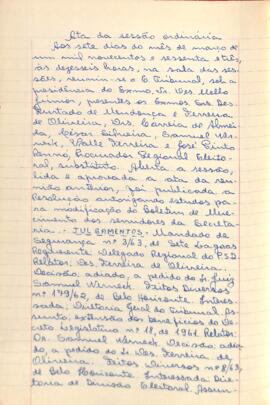 Ata da sessão ordinária
Aos sete dias do mês de março de
um mil novecentos e sessenta e três,
às dezesseis horas, na sala das ses-
sões, reuniu-se o E. Tribunal, sob a
presidência do Exmo. Sr. Des. Mello
Junior, presentes os Exmos. Srs. Des.
Furtado de Mendonça e Ferreira
de Oliveira, Drs. Correia de Almei-
da, Cesar Silveira, Samuel Wer-
neck, Valle Ferreira e José Pinto
Renno, Procurador Regional Eleito-
ral, substituto. Aberta a sessão,
lida e aprovada a ata da reu-
nião anterior, foi publicada a
Resolução autorizando estudos pa-
ra modificação do Boletim de Mere-
cimento dos servidores da Secreta-
ria. - JULGAMENTOS. Mandado de
Segurança nº 3/63, de Sete Lagoas
Requerente Delegado Regional do P.S.D.
Relator: Des. Ferreira de Oliveira.
Decisão: adiado, a pedido do dr.
Samuel Werneck. Feitos Diversos
nº 179/62, de Belo Horizonte. Interes-
sada: Diretoria Geral do Tribunal. As-
sunto, extensão dos benefícios do De-
creto Legislativo nº 18, de 1961. Relator:
Dr. Samuel Werneck. Decisão: adia-
do, a pedido do Des. Ferreira de
Oliveira. Feitos Diversos nº 8/63,
de Belo Horizonte. Interessada: Dire-
toria de Divisão Eleitoral. Assun-